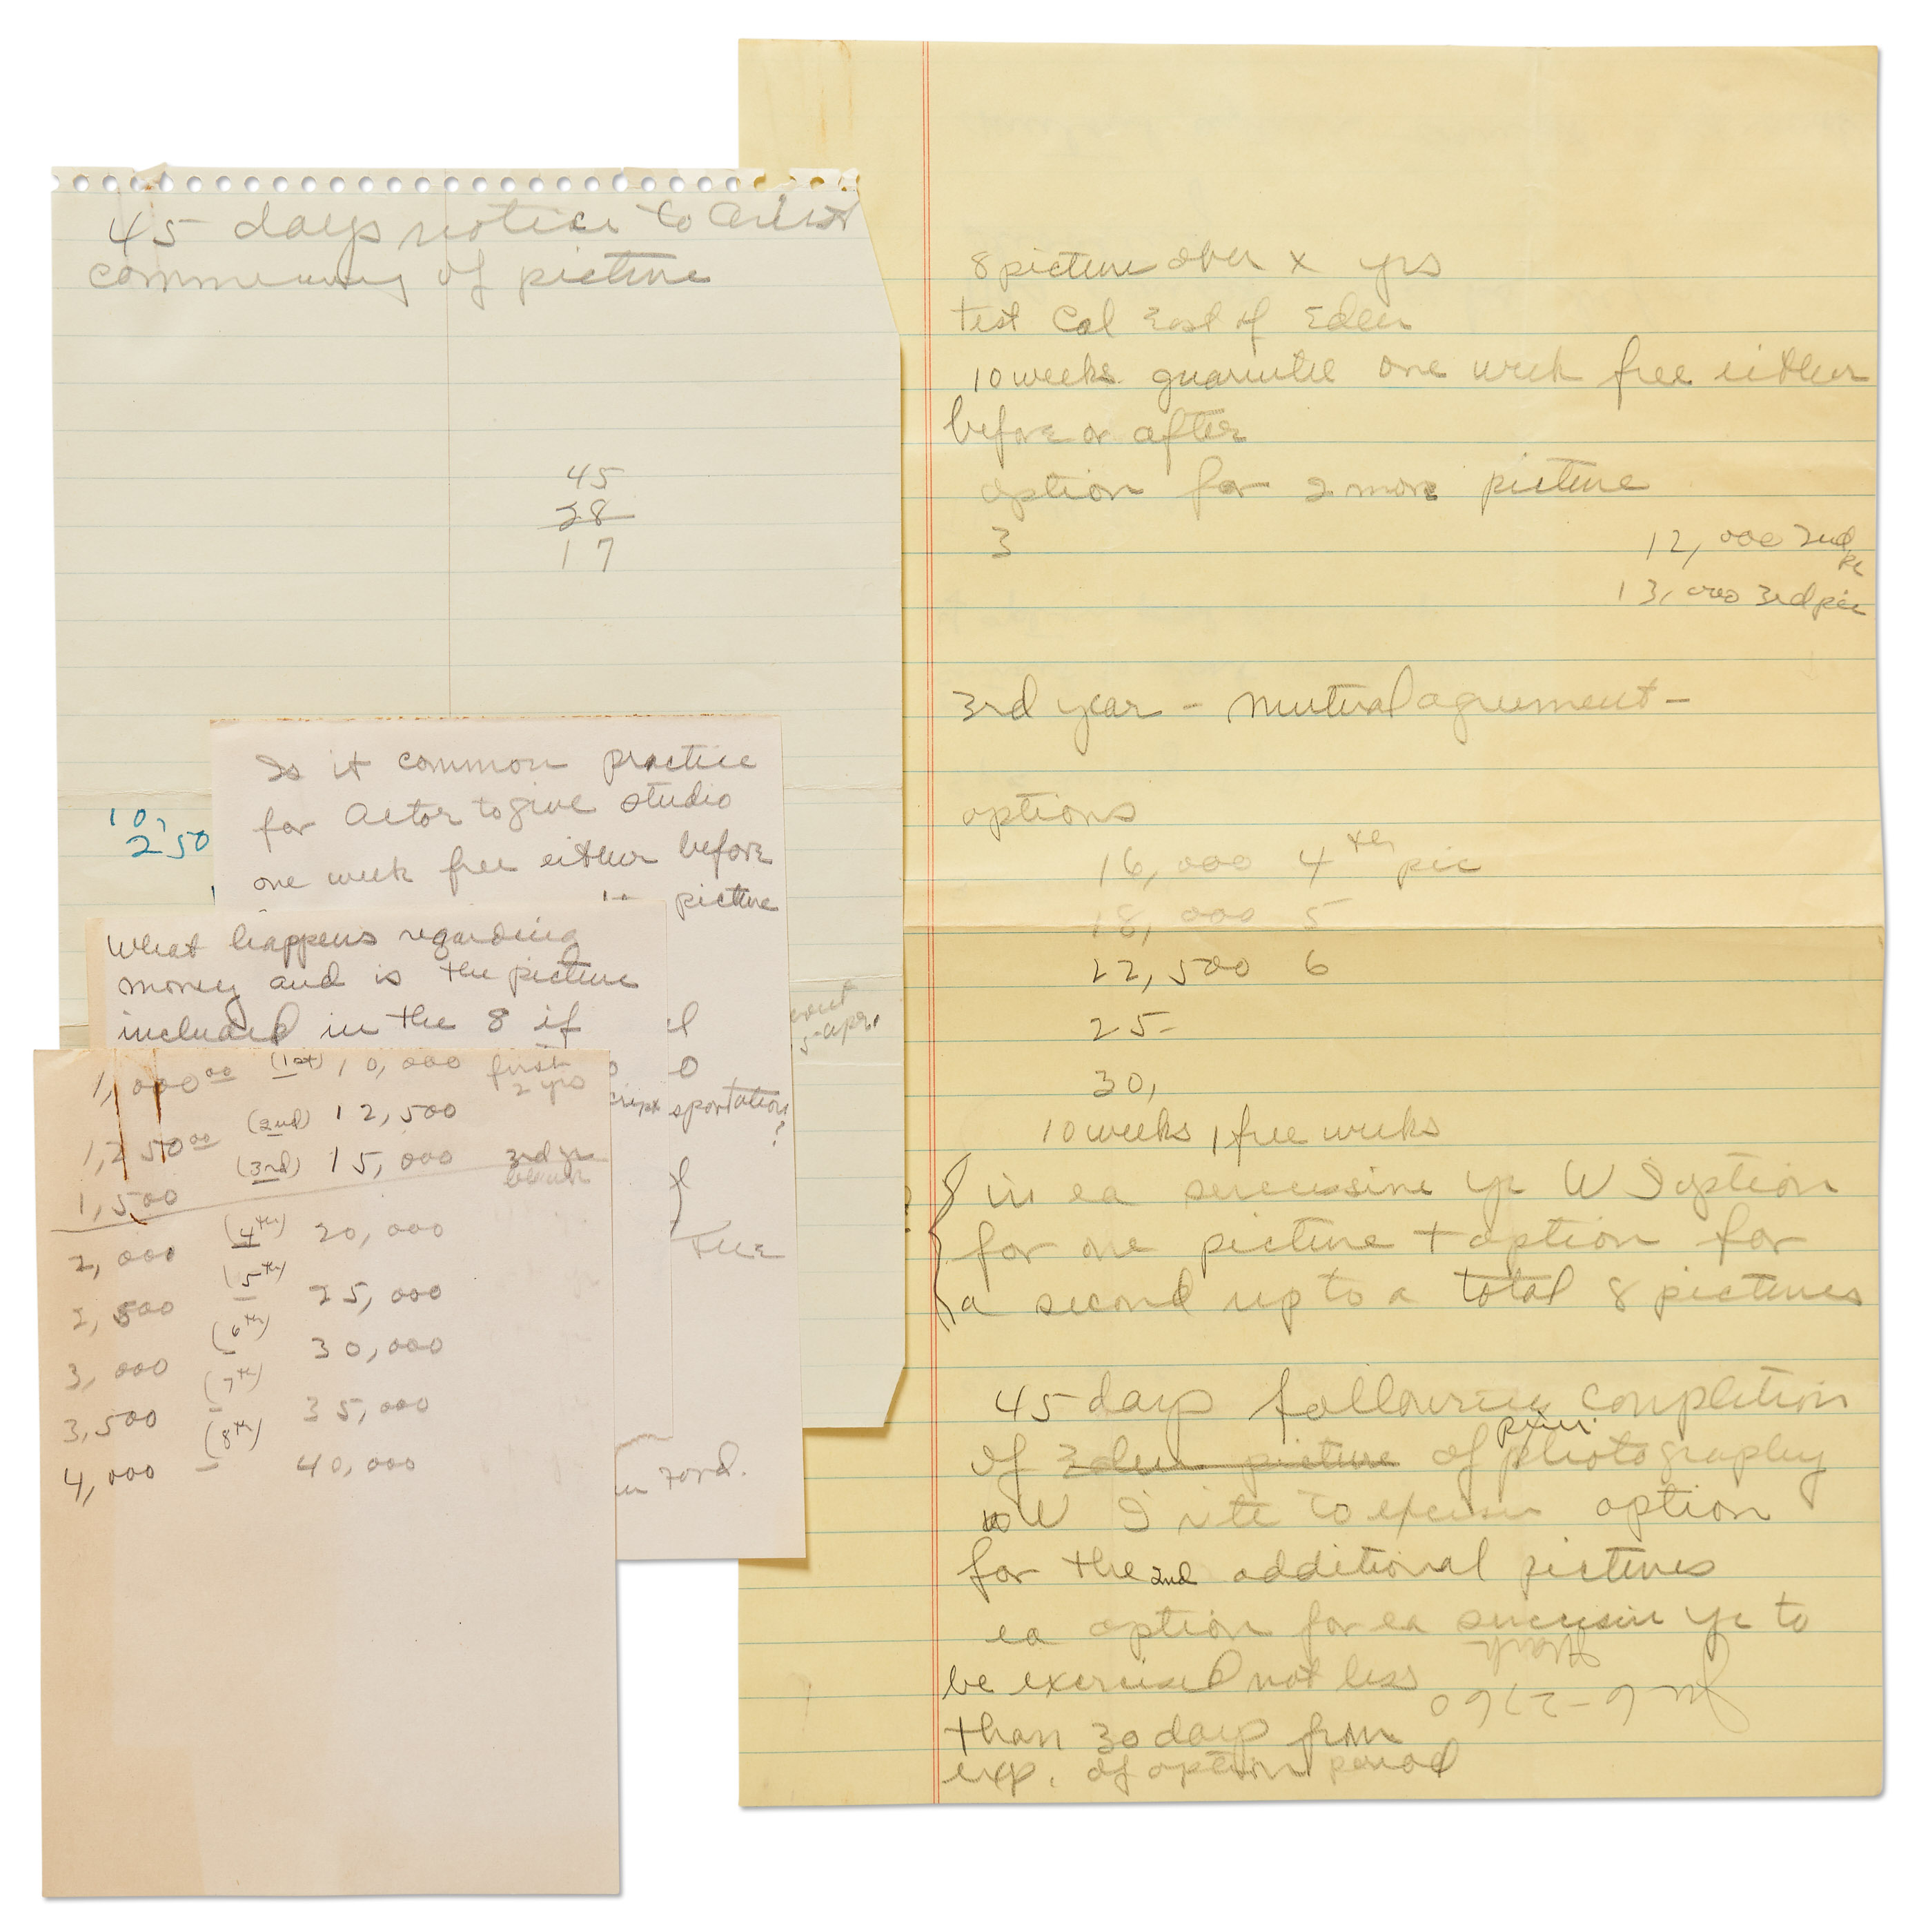 45 days notice to artist
commencing of picture
45
28
17
10,
250
Is it common practice
for Actor to give studio
one week free either before
picture
What happens regarding
money and is the picture
included in the 8 if
sportation
?
ford.
1,000.00 (1st) 10,000 first
2 yrs
1,250.00 (2nd) 12,500
1,500 (3rd) 15,000 3rd yr
2,000 (4th) 20,000
2,500 (5th) 25,000
3,000 (6th) 30,000
3,500 (7th) 35,000
4,000 (8th) 40,000
8 picture over x yrs
test Cal East of Eden
10 weeks guarantee one week free either
before or after
option for 2 more picture
3
12,000 2nd
pic
13,000 3rd pic
3rd year - mutual agreement -
options
16,000 4th pic
18,000 5
22,500 6
25-
30,
10 weeks, 1 free weeks
in ea successive yr W I option
for one picture + option for
a second up to a total 8 pictures
45 days following completion
of picture of prin. photography
W I rite to exercise option
for the 2nd additional pictures
ea option for ea successive yr to
be exercised not less
than 30 days from
exp. of option period
Ju 6-2760